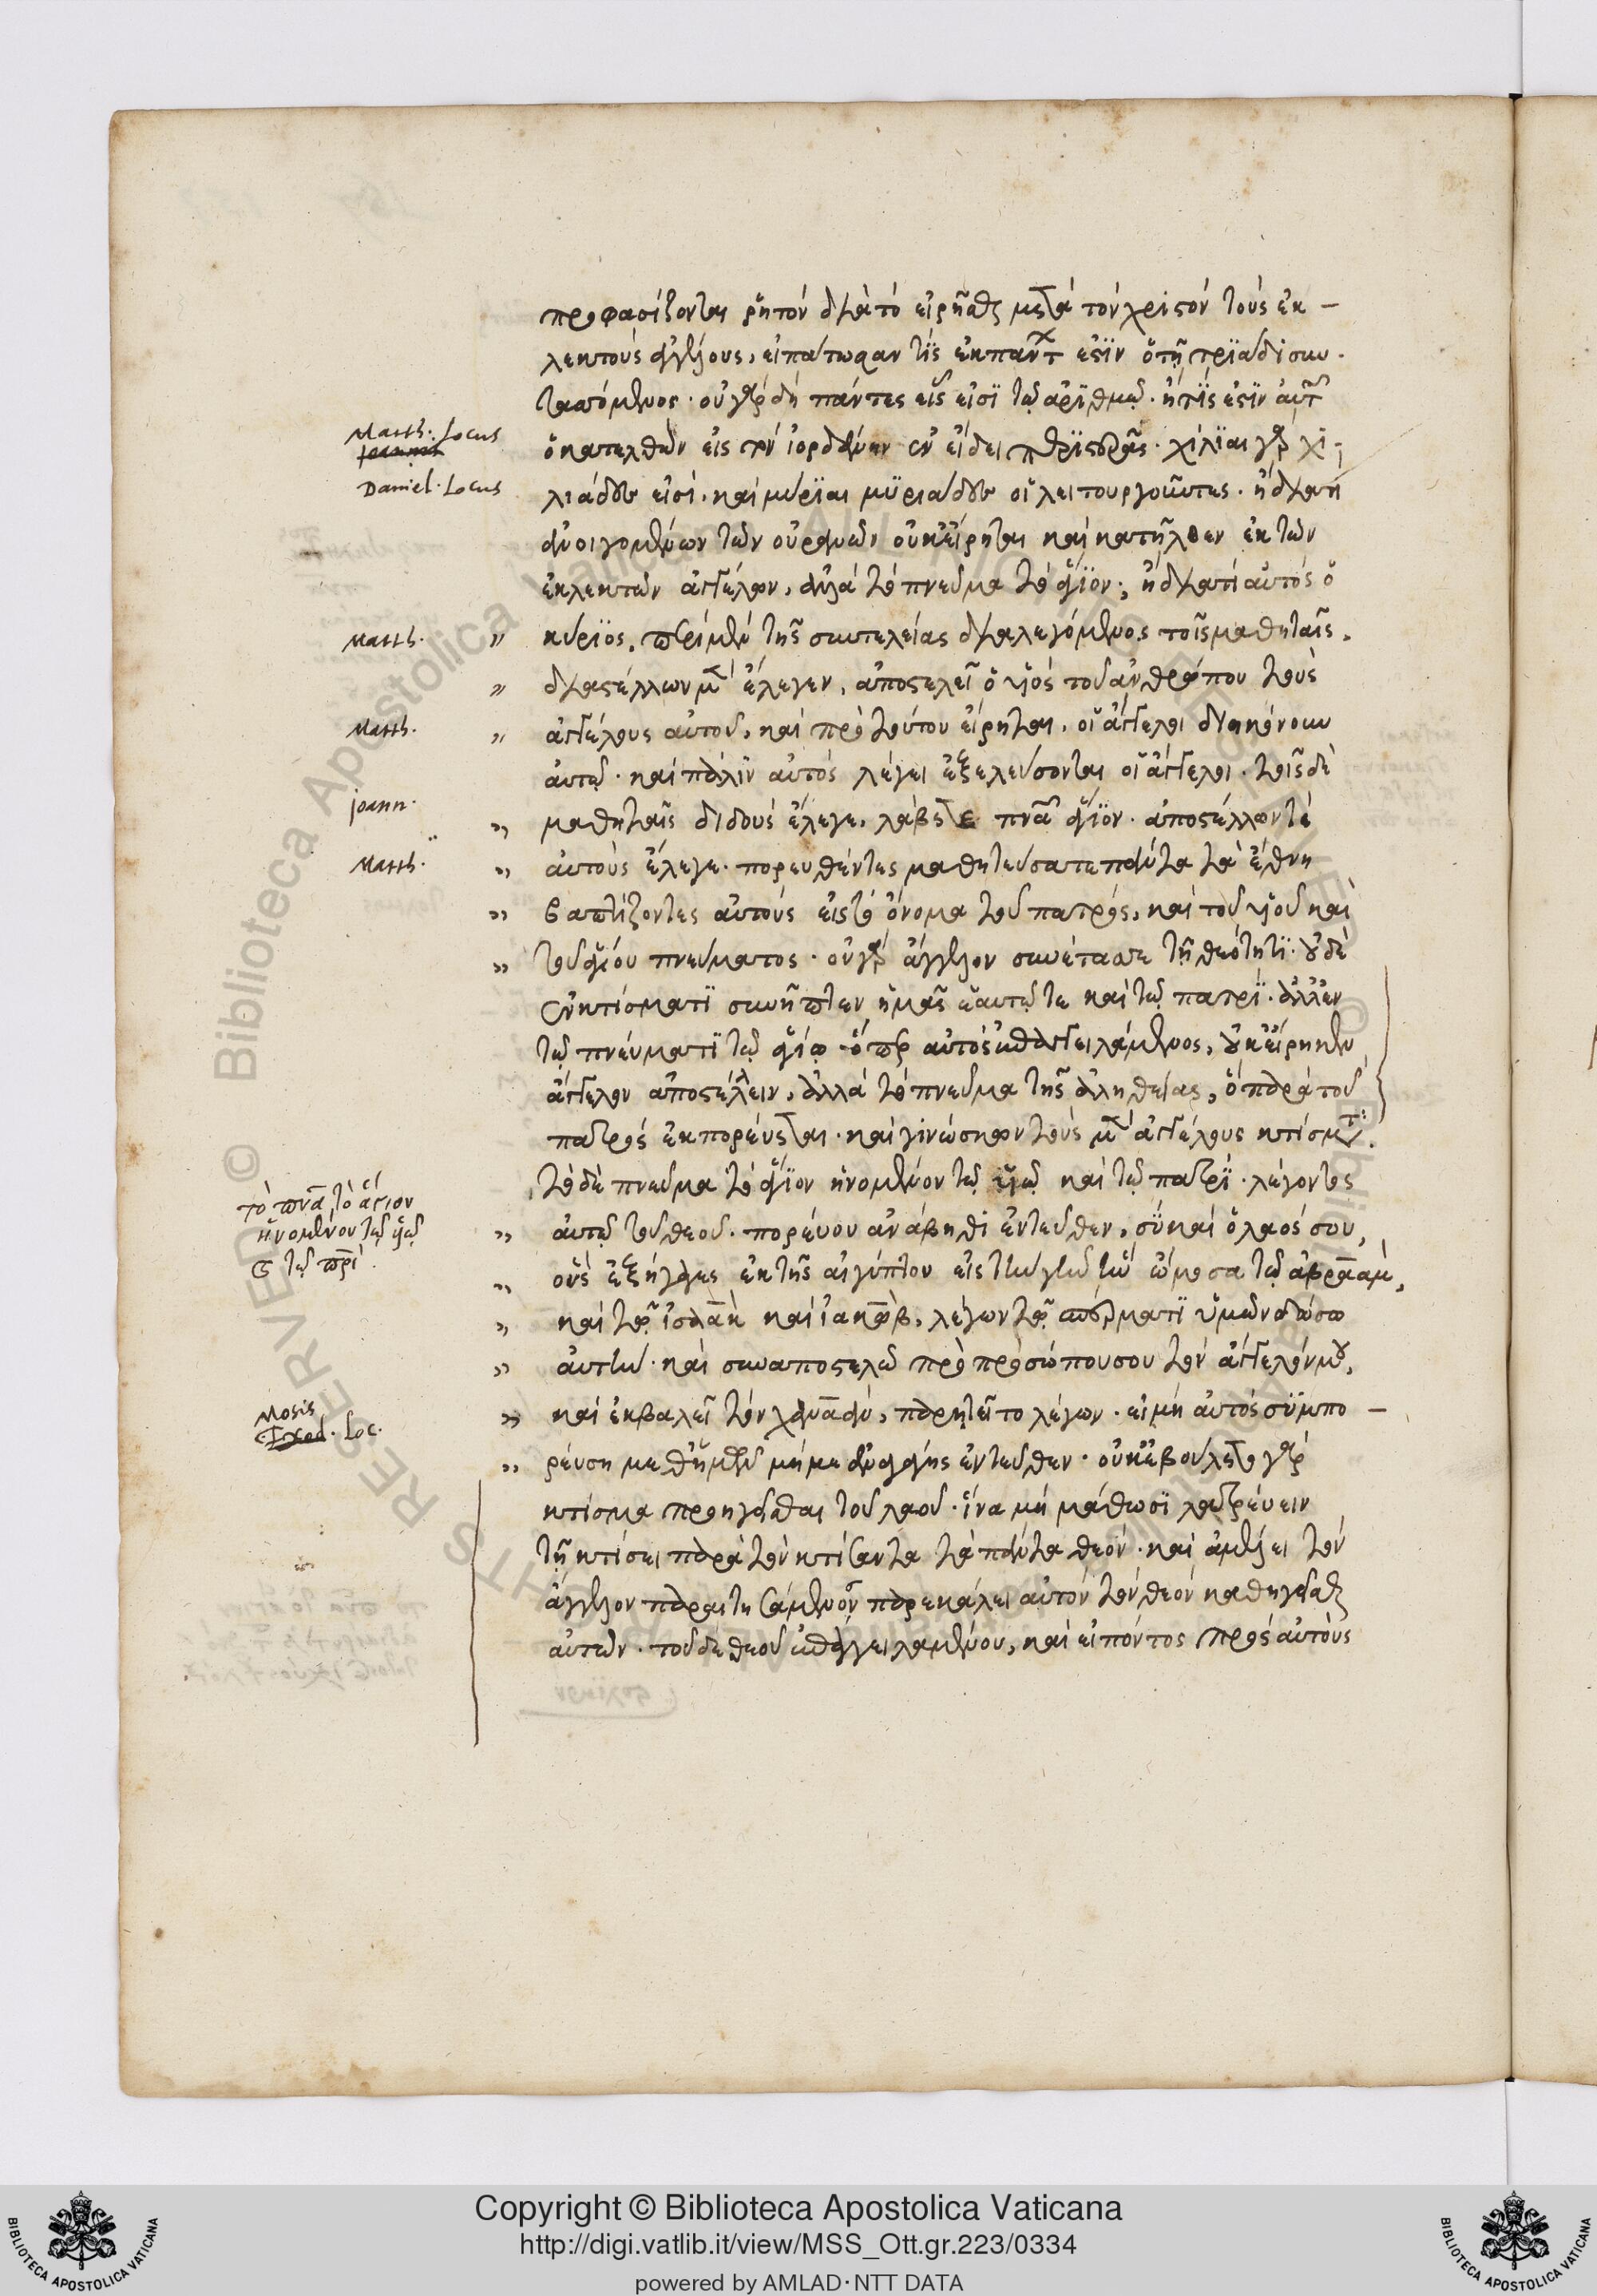 προφασίζονται ρητόν διὰ τὸ εἰρῆσθαι μετὰ τὸν χριστόν τοὺς ἐκ-
λεκτοὺς ἀγγέλους, εἰπάτωσαν τίς ἐκ πάντων ἐστὶν ὁ τῇ τριάδι συν-
ταττόμενος. οὐ γὰρ δὴ πάντες εἷς εἰσι τῷ ἀριθμῷ. ἢ τίς ἐστιν αὐτῶν
ὁ κατελθὼν εἰς τὸν ἰορδάνην ἐν εἴδει περιστερᾶς. χίλιαι γὰρ χι-
λιάδες εἰσί. καὶ μύριαι μυριάδες οἱ λειτουργοῦντες. ἢ διατί
ἀνοιγομένων τῶν οὐρανῶν οὐκ εἴρηται καὶ κατῆλθεν ἐκ τῶν
ἐκλεκτῶν ἀγγέλων, ἀλλὰ τὸ πνεῦμα τὸ ἅγιον; ἢ διατί αὐτὸς ὁ
κύριος, περὶ μὲν τῆς συντελείας διαλεγόμενος τοῖς μαθηταῖς,
διαστέλλων μὲν ἔλεγεν, ἀποστελεῖ ὁ υἱὸς τοῦ ἀνθρώπου τοὺς
ἀγγέλους αὐτοῦ, καὶ πρὸ τούτου εἴρηται, οἱ ἄγγελοι διηκόνουν
αὐτῷ. καὶ πάλιν αὐτὸς λέγει ἐξελεύσονται οἱ ἄγγελοι. τοῖς δὲ
μαθηταῖς διδοὺς ἔλεγε, λάβετε πνα ἅγιον. ἀποστέλλων τε
αὐτοὺς ἔλεγε. πορευθέντες μαθητεύσατε πάντα τὰ ἔθνη
βαπτίζοντες αὐτοὺς εἰς τὸ ὄνομα τοῦ πατρός, καὶ τοῦ υἱοῦ καὶ
τοῦ ἁγίου πνεύματος. οὐ γὰρ ἄγγελον συνέταξε τῇ θεότητι. οὐδὲ
ἐν κτίσματι συνῆπτεν ἡμᾶς ἑαυτῷ τε καὶ τῷ πατρί. ἀλλ' ἐν
τῷ πνεύματι τῷ ἁγίῳ ὅπερ αὐτὸς ἐπαγγειλάμενος, οὐκ εἴρηκεν
ἄγγελον ἀποστέλλειν, ἀλλὰ τὸ πνεῦμα τῆς ἀληθείας, ὃ παρὰ τοῦ
πατρὸς ἐκπορεύεται. καὶ γινώσκων τοὺς μὲν ἀγγέλους κτίσματα.
τὸ δὲ πνεῦμα τὸ ἅγιον ἡνωμένον τῷ υἱῷ καὶ τῷ πατρί. λέγοντος
αὐτῷ τοῦ θεοῦ. πορεύου ἀνάβηθι ἐντεῦθεν, σὺ καὶ ὁ λαός σου,
οὓς ἐξήγαγες ἐκ τῆς αἰγύπτου εἰς τὴν γῆν ἣν ὤμοσα τῷ ἀβραάμ,
καὶ τῷ ἰσαὰκ καὶ ἰακώβ, λέγων τῷ σπέρματι ὑμῶν δώσω
αὐτήν. καὶ συναποστελῶ πρὸ προσώπου σου τὸν ἄγγελόν μου,
καὶ ἐκβαλεῖ τὸν χαναάν, παρῃτεῖτο λέγων. εἰ μὴ αὐτὸς σὺ μπο-
ρεύσῃ μεθ' ἡμῶν μή με ἀναγάγῃς ἐντεῦθεν. οὐκ ἐβούλετο γὰρ
κτίσμα προηγεῖσθαι τοῦ λαοῦ. ἵνα μὴ μάθωσι λατρεύειν
τῇ κτίσει παρὰ τὸν κτίσαντα τὰ πάντα θεόν. καὶ ἀμέλει τὸν
ἄγγελον παραιτησάμενος παρεκάλει αὐτὸν τὸν θεὸν καθηγεῖσθαι
αὐτῶν. τοῦ δὲ θεοῦ ἐπαγγειλαμένου, καὶ εἰπόντος πρὸς αὐτοὺς
Matth. Locus
Daniel. Locus
Matth.
Matth.
joann.
Matth.
τὸ πνα τὸ ἅγιον
ἡνομένον τῷ υἱῷ
καὶ τῷ πρι.
Mosis
Exod. Loc.
Copyright © Biblioteca Apostolica Vaticana
http://digi.vatlib.it/view/MSS_Ott.gr.223/0334
powered by AMLAD·NTT DATA
BIBLIOTECA APOSTOLICA VATICANA
BIBLIOTECA APOSTOLICA VATICANA